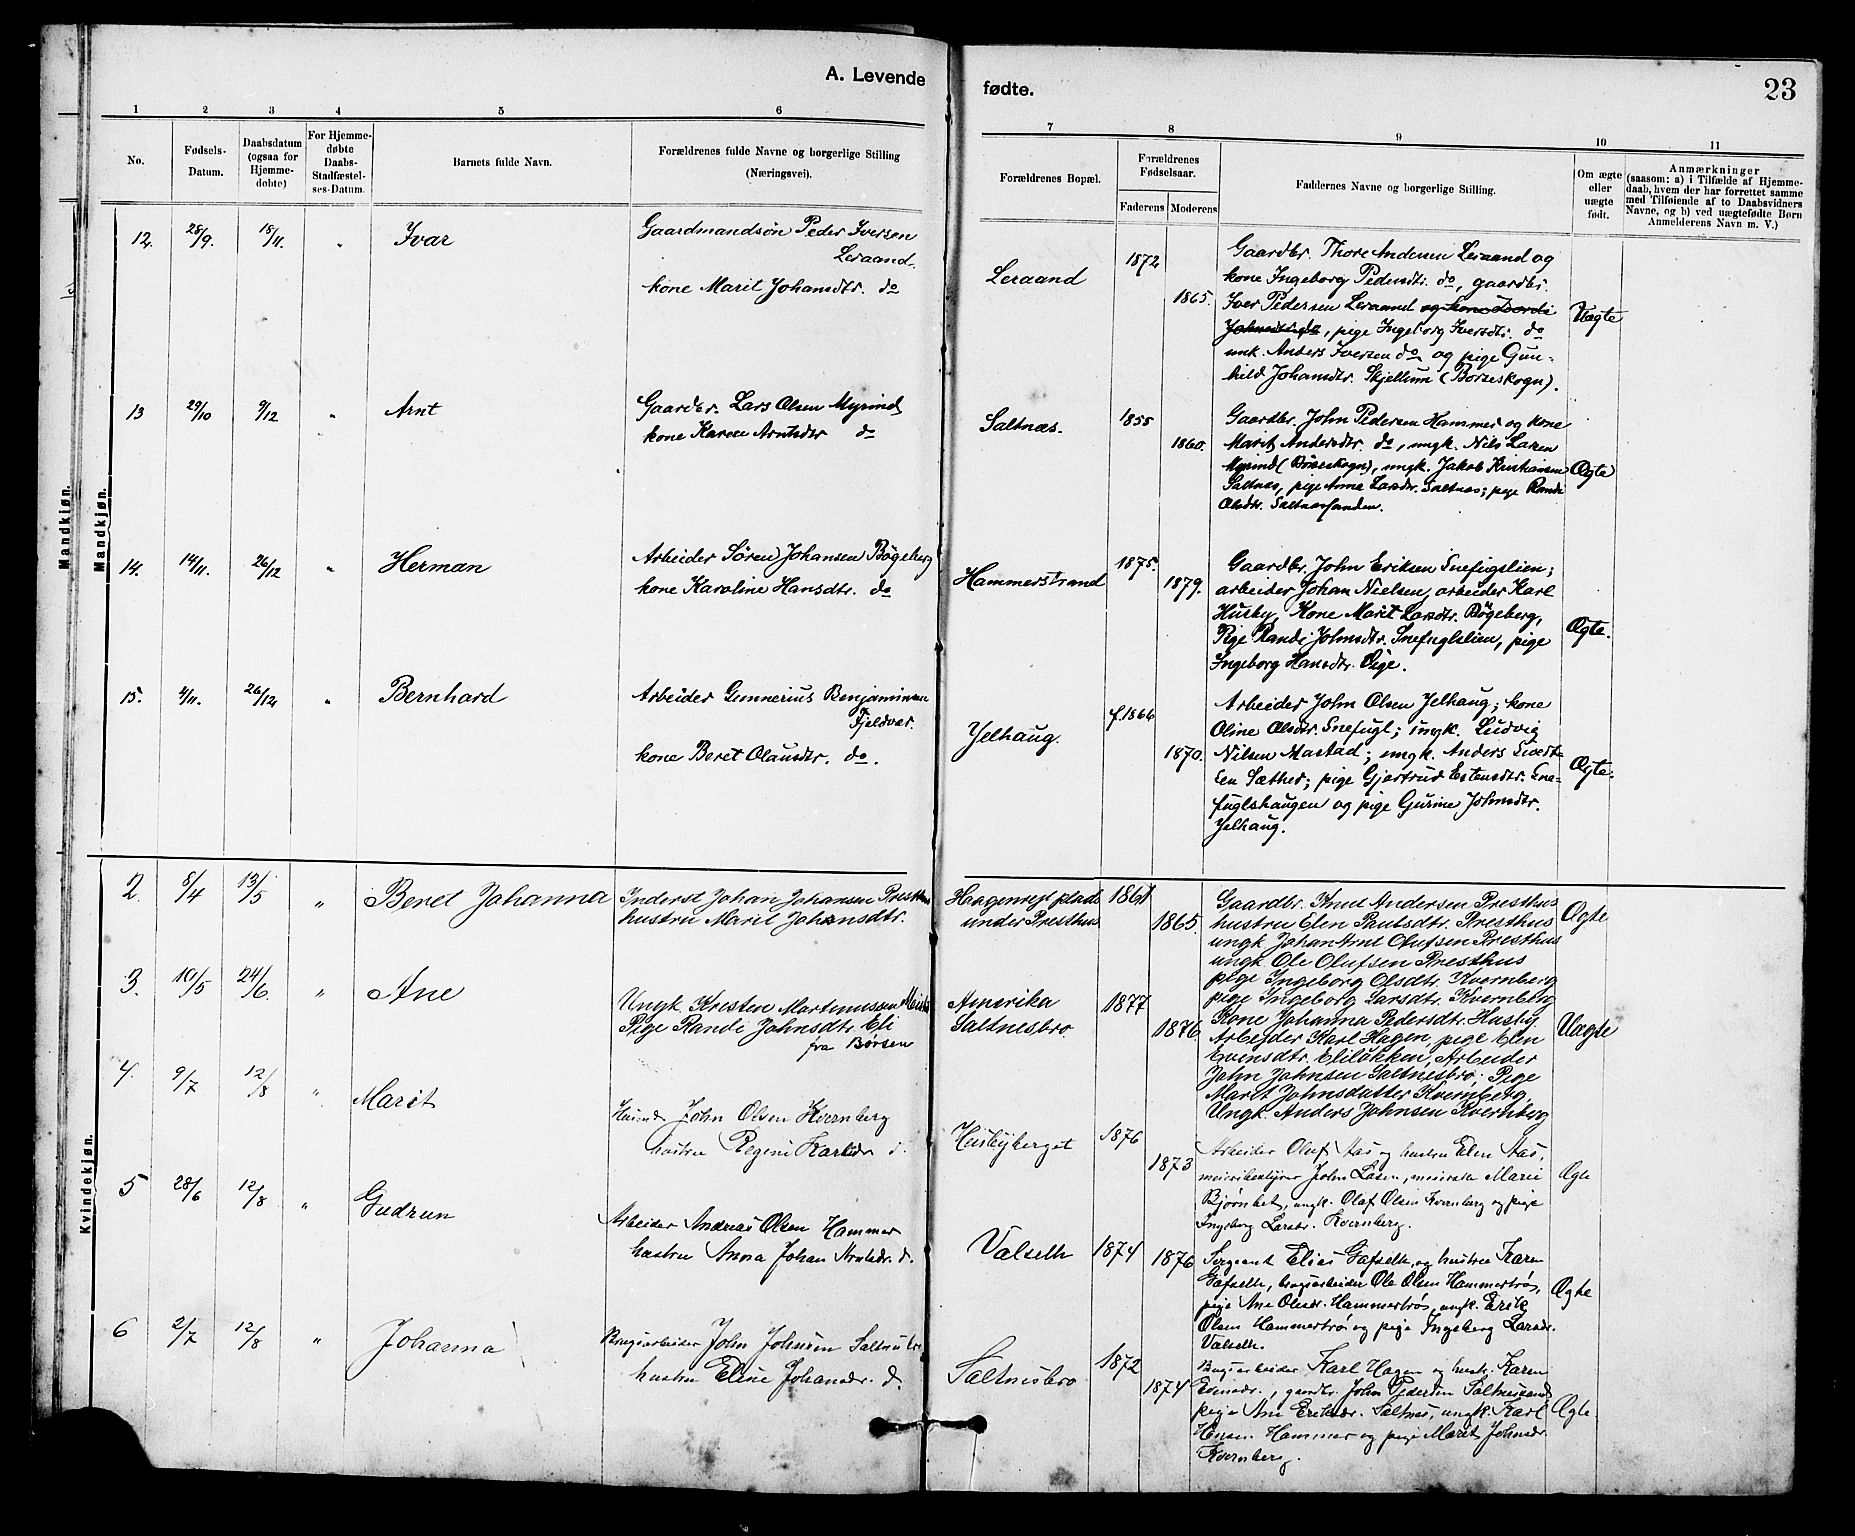 A. Levende
fødte.
23
1 2 3 4 5 6
7 8 9 10 11
No.
Fødsels-
Datum.
Daabsdatum
(ogsaa for
Hjemme-
døbte)
For Hjemme-
døbte
Daabs-
Stadfæstel-
ses-Datum.
Barnets fulde Navn.
Forældrenes fulde Navne og borgerlige Stilling
(Næringsvei).
Forældrenes Bopæl.
Forældrenes
Fødselsaar.
Faderens Moderens
Faddernes Navne og borgerlige Stilling.
Om ægte
eller
uægte
født.
Anmærkninger
(saasom: a) i Tilfælde af Hjemme-
daab, hvem der har forrettet samme
med Tilføiende af to Daabsvidners
Navne, og b) ved uægtefødte Børn
Anmelderens Navn m. V.)
Mandkjøn.
Mandkjøn.
12. 28/9. 18/11. " Ivar
Gaardmandsøn Peder Iversen
Leraand.
kone Marit Johansdtr. do
Leraand
1872
1865.
Gaardbr. Thore Andersen Leraand og
kone Ingeborg Pedersdtr. do, gaardbr.
Iver Pedersen Leraand og kone
, pige Ingeborg Iversdtr. do
unk. Anders Iversen do og pige Gun-
hild Johansdtr. Skjellum (Børseskogn).
Uægte
13 29/10 9/12 " Arnt
Gaardbr. Lars Olsen Myrind
kone Karen Arntsdtr do
Saltnæs.
1855
1860.
Gaardbr. John Pedersen Hammer og kone
Marit Andersdtr. do, ungk. Nils Larsen
Myrind (Børseskogn), ungk. Jakob Kristiansen
Saltnæs, pige Anna Larsdtr. Saltnæs; pige Randi
Olsdtr. Saltnæssanden.
Ægte
14. 14/11. 26/12 " Herman
Arbeider Søren Johansen Bøgeberg
kone Karoline Hansdtr. do
Hammerstrand
1875.
1879.
Gaardbr. John Eriksen Snefugslien;
arbeider Johan Nielsen, arbeider Karl
Husby, Kone Marit Larsdtr. Bøgeberg,
Pige Randi Johnsdtr. Snefuglslien, pige
Ingeborg Hansdtr. Øige.
Ægte.
15. 4/11. 26/12 " Bernhard
Arbeider Gunnerius Benjaminsen
Fjeldvær.
kone Beret Olausdtr. do.
Jelhaug.
f. 1866
1870.
Arbeider John Olsen Jelhaug; kone
Oline Olsdtr. Snefugl; ungk. Ludvig
Nilsen Mastad; ungk. Anders Sivert-
sen Sæther; pige Gjertrud Estensdtr. Sne-
fuglshaugen og pige Gurine Johnsdtr.
Jelhaug.
Ægte.
Kvindekjøn.
2. 8/4 13/5 " Beret Johanna
Inderst Johan Johansen Presthus
hustru Marit Johansdtr.
Haagenrejt plads
under Presthus
1861
1865.
Gaardbr. Knut Andersen Presthus
hustru Elen Paulsdtr. Presthus
ungk Johan Arnt Olufsen Presthus
ungk. Ole Olufsen Presthus
pige Ingeborg Olsdtr. Kvernberg
pige Ingeborg Larsdtr. Kvernberg
Ægte
3. 10/5 24/6 " Ane
Ungk Kresten Martinussen
Pige Randi Johnsdtr. Eli
fra Børsen
Amerika
Saltnesbro
1877
1876
Kone Johanna Pedersdtr. Husby
Arbejder Karl Hagen, pige Elen
Evensdtr. Eliløkken, Arbeider
John Johnsen Saltnesbro. Pige
Marit Johnsdatter Kvernberg,
Ungk. Anders Johnsen Kvernberg
Uægte
4. 9/7 12/8 " Marit
John Olsen Kvernberg
hustru Regine Karlsdr d.
Husbyberget
1876
1873
Arbeider Oluf Aas og hustru Elen Aas,
meieribestyrer John Løsen, meierske Marie
Bjørnbet, ungk. Olaf Olsen Kvernberg og pige
Ingeborg Larsdr. Kvernberg.
Ægte
5 28/6 12/8 " Gudrun
Arbeider Andreas Olsen Hammer
hustru Anna Johan Arntsdr. d.
Valseth
1874
1876
Sergeant Elias Gafseth, og hustru Karen
Gafseth, brugsarbeider Ole Olsen Hammerbrøs,
pige Ane Olsdr. Hammerbrøs, ungk. Erik
Olsen Hammerbrø og pige Ingeborg Larsdr.
Valseth.
Ægte
6 2/7 12/8 " Johanna
Brugsarbeider John Johnsen Saltnesbro,
hustru Eline Johansdr. d.
Saltnesbro
1872
1874
Brugsarbeider Karl Hagen og hustr. Karen
Evensdr., gaardbr. John Pedersen Saltnessand,
pige Ane Eriksdr. Saltnes, ungk. Karl
Hansen Hammer og pige Marit Johnsdr.
Kvernberg.
Ægte.